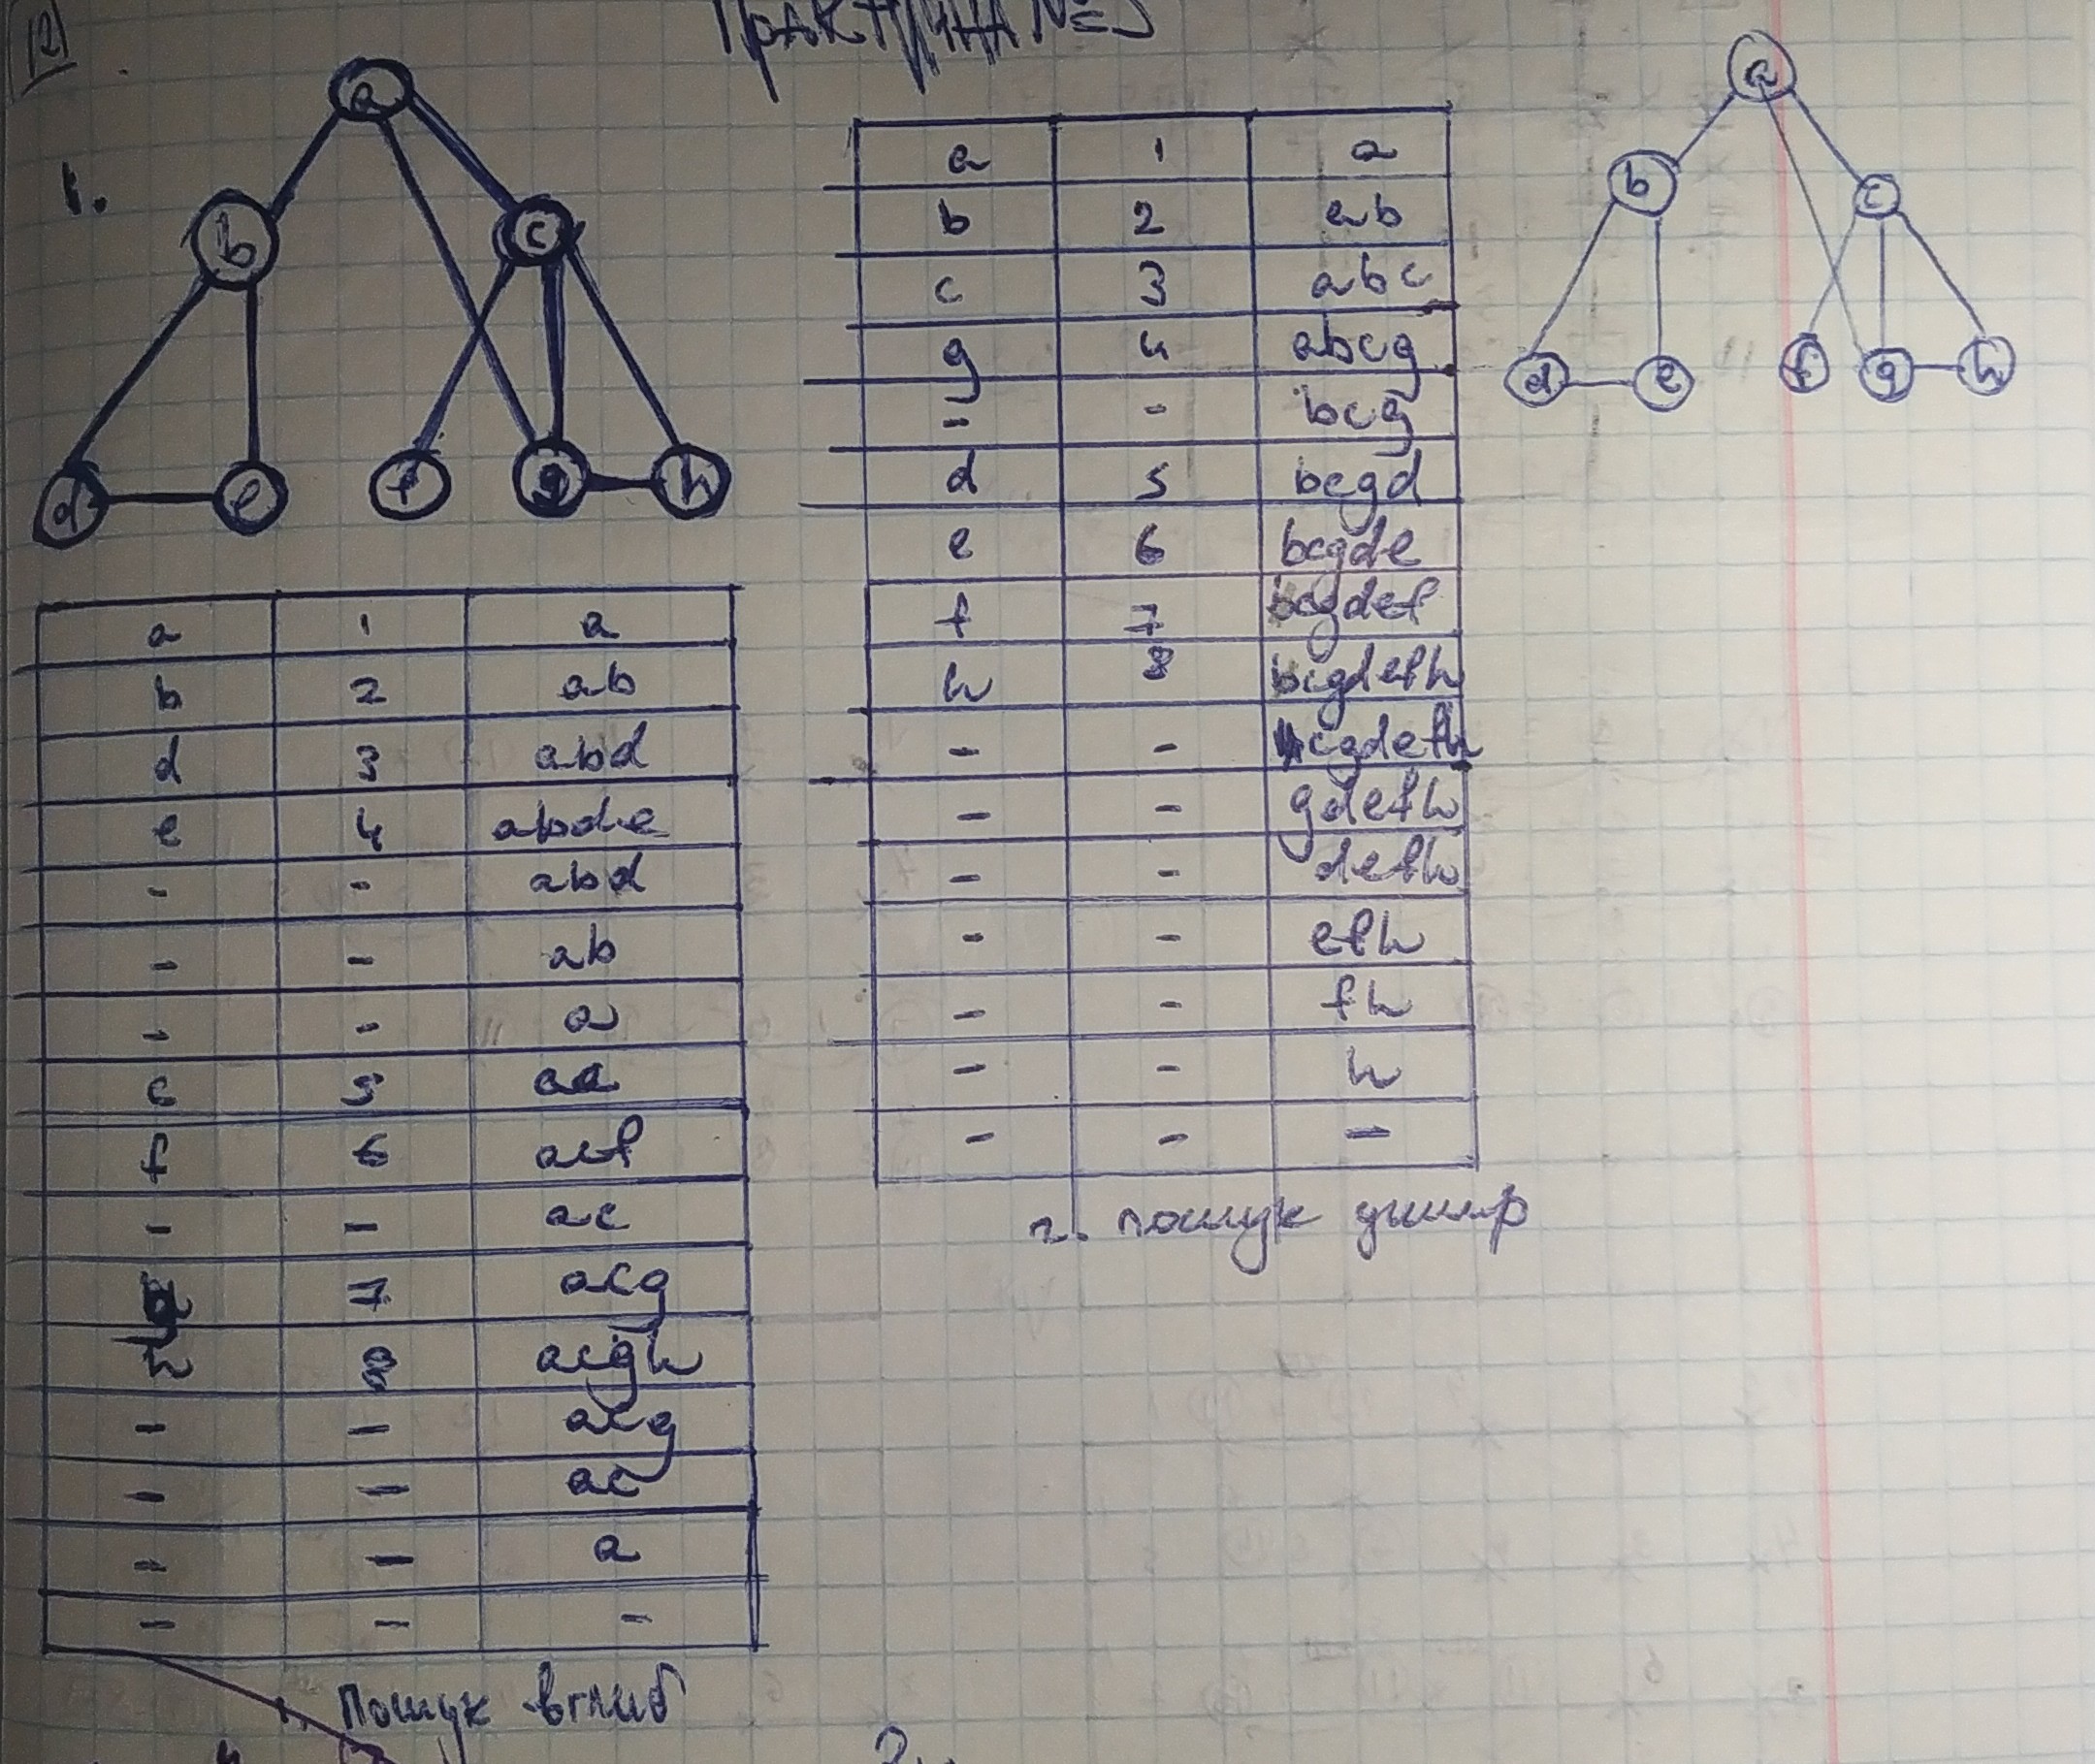 12
ПРАКТИЧНА №5
1.
a
b
c
d
e
f
g
h
a 1 a
b 2 ab
d 3 abd
e 4 abde
- - abd
- - ab
- - a
c 5 aa
f 6 acf
- - ac
g 7 acg
h 8 acgh
- - acg
- - ac
- - a
- - -
1. Пошук вглиб
a 1 a
b 2 ab
c 3 abc
g 4 abcg
- - bcg
d 5 bcgd
e 6 bcgde
f 7 bcgdef
h 8 bcgdefh
- - cgdefh
- - gdefh
- - defh
- - efh
- - fh
- - h
- - -
2. пошук ушир
a
b
c
d
e
f
g
h